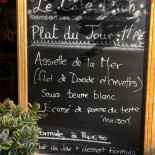 Le Café
Plat du Jour 11,9€
Assiette de la Mer
(filet de Dorade et crevettes)
Sauce beurre blanc
Ecrasé de pomme de terre
maison
Formule à
Plat du jour + dessert